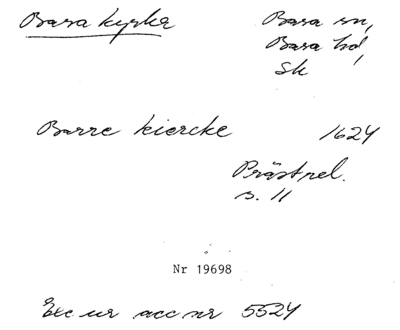 Bara kyrka
Bara sn,
Bara hd,
Sk
Barre kiercke 1624
Prästrel.
s. 11
Nr 19698
Exc ur acc nr 5524